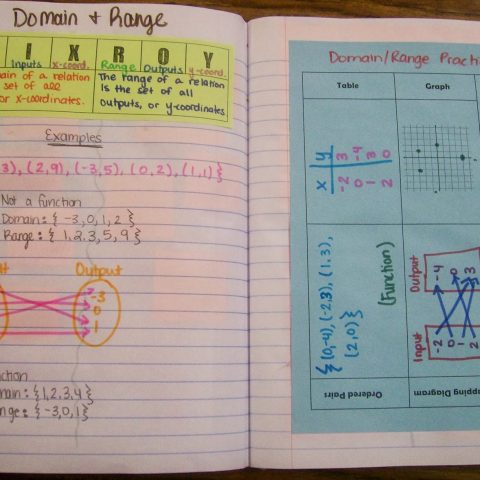 Domain & Range
I X R O Y
Inputs x-coord. Range Outputs y-coord.
ain of a relation
set of all
or x-coordinates.
The range of a relation
is the set of all
outputs, or y-coordinates
Examples
3), (2,9), (-3,5), (0,2), (1,1)}
Not a function
Domain: { -3,0,1,2 }
Range: { 1,2,3,5,9 }
Output
-3
0
1
nction
main: {1,2,3,4}
nge: {-3,0,1}
Domain/Range Practi
Table
Graph
x y
-2 3
0 -4
1 3
2 0
{(0,-4), (-2,3), (1,3),
(2,0)}
(Function)
Input
Output
-2
0
1
2
-4
0
3
Ordered Pairs
pping Diagram